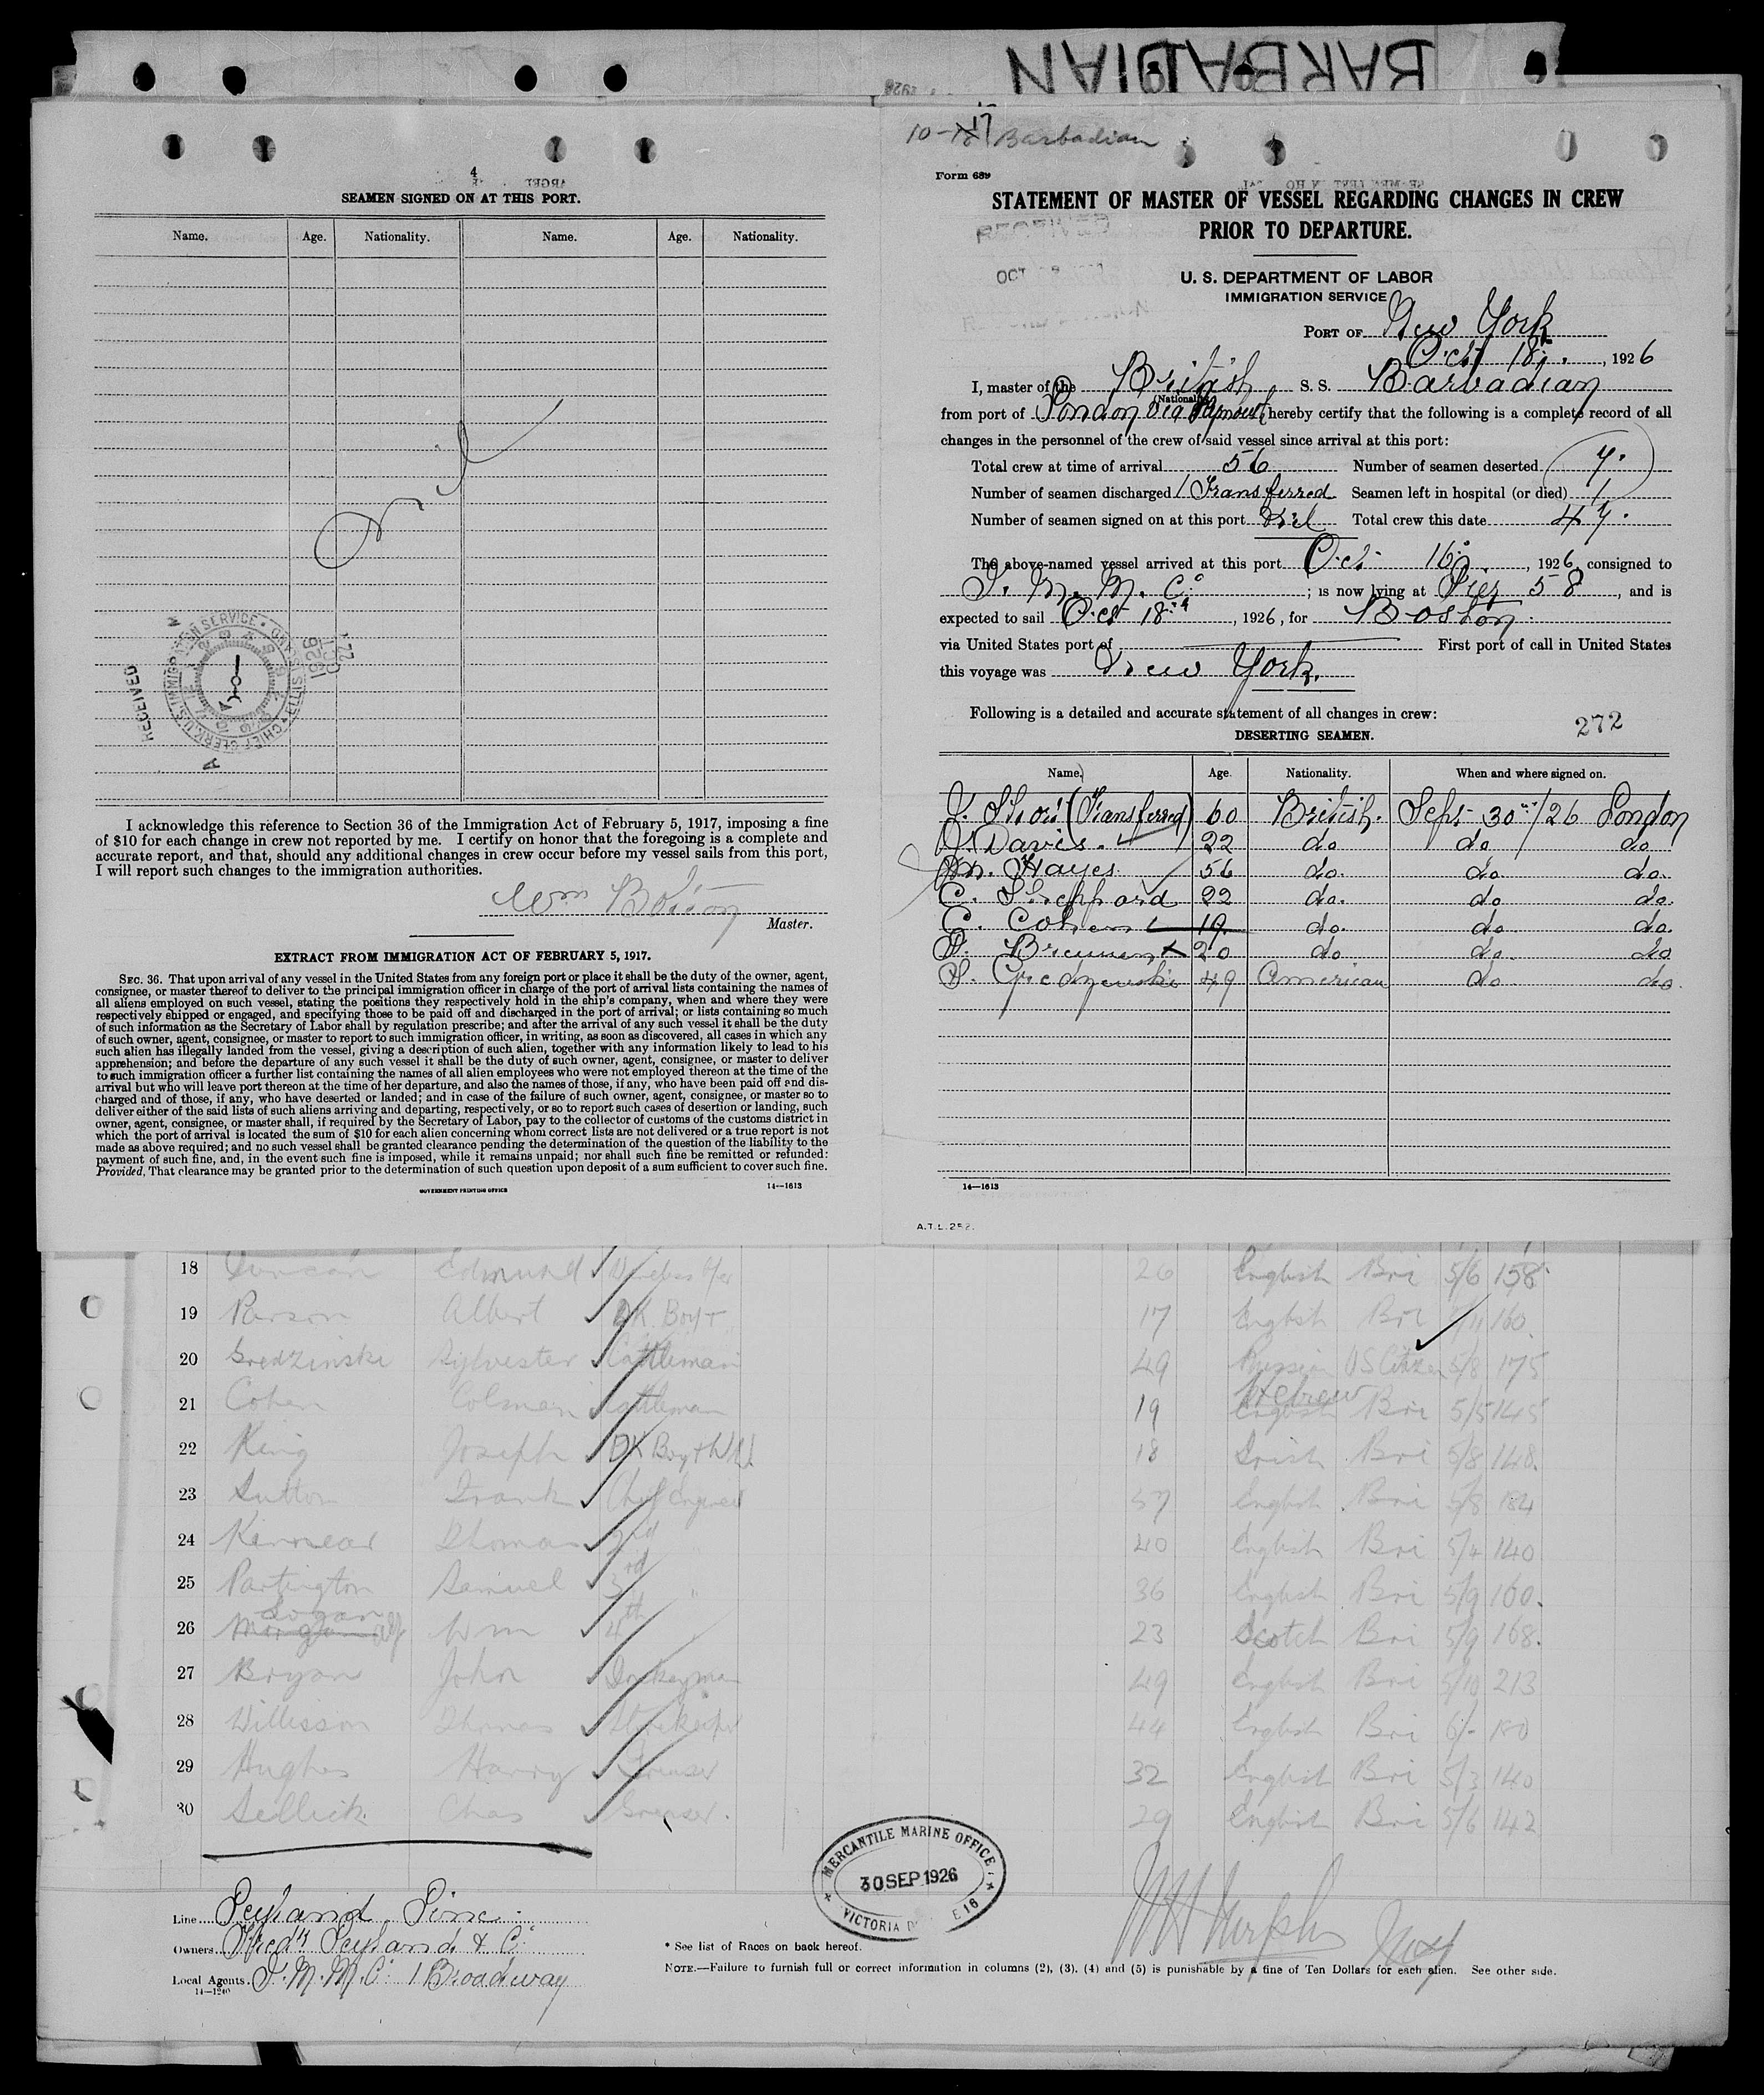 BARBADIAN
4
SEAMEN SIGNED ON AT THIS PORT.
Name. Age. Nationality. Name. Age. Nationality.
Nil
RECEIVED
U.S. IMMIGRATION SERVICE
CHIEF CLERK
ELLIS ISLAND
OCT 22 1926
I acknowledge this reference to Section 36 of the Immigration Act of February 5, 1917, imposing a fine
of $10 for each change in crew not reported by me. I certify on honor that the foregoing is a complete and
accurate report, and that, should any additional changes in crew occur before my vessel sails from this port,
I will report such changes to the immigration authorities.
Wm Bolton
Master.
EXTRACT FROM IMMIGRATION ACT OF FEBRUARY 5, 1917.
SEC. 36. That upon arrival of any vessel in the United States from any foreign port or place it shall be the duty of the owner, agent,
consignee, or master thereof to deliver to the principal immigration officer in charge of the port of arrival lists containing the names of
all aliens employed on such vessel, stating the positions they respectively hold in the ship's company, when and where they were
respectively shipped or engaged, and specifying those to be paid off and discharged in the port of arrival; or lists containing so much
of such information as the Secretary of Labor shall by regulation prescribe; and after the arrival of any such vessel it shall be the duty
of such owner, agent, consignee, or master to report to such immigration officer, in writing, as soon as discovered, all cases in which any
such alien has illegally landed from the vessel, giving a description of such alien, together with any information likely to lead to his
apprehension; and before the departure of any such vessel it shall be the duty of such owner, agent, consignee, or master to deliver
to such immigration officer a further list containing the names of all alien employees who were not employed thereon at the time of the
arrival but who will leave port thereon at the time of her departure, and also the names of those, if any, who have been paid off and dis-
charged and of those, if any, who have deserted or landed; and in case of the failure of such owner, agent, consignee, or master so to
deliver either of the said lists of such aliens arriving and departing, respectively, or so to report such cases of desertion or landing, such
owner, agent, consignee, or master shall, if required by the Secretary of Labor, pay to the collector of customs of the customs district in
which the port of arrival is located the sum of $10 for each alien concerning whom correct lists are not delivered or a true report is not
made as above required; and no such vessel shall be granted clearance pending the determination of the question of the liability to the
payment of such fine, and, in the event such fine is imposed, while it remains unpaid; nor shall such fine be remitted or refunded:
Provided, That clearance may be granted prior to the determination of such question upon deposit of a sum sufficient to cover such fine.
GOVERNMENT PRINTING OFFICE 14—1613
10-17 Barbadian
Form 689
STATEMENT OF MASTER OF VESSEL REGARDING CHANGES IN CREW
PRIOR TO DEPARTURE.
RECEIVED
OCT
U. S. DEPARTMENT OF LABOR
IMMIGRATION SERVICE
PORT OF New York
Oct 18, 1926
I, master of the British S. S. Barbadian
(Nationality)
from port of London via Plymouth, hereby certify that the following is a complete record of all
changes in the personnel of the crew of said vessel since arrival at this port:
Total crew at time of arrival 56 Number of seamen deserted 7.
Number of seamen discharged 1 Transferred Seamen left in hospital (or died) 1
Number of seamen signed on at this port Nil Total crew this date 47.
The above-named vessel arrived at this port Oct 16, 1926, consigned to
I. M. M. Co; is now lying at Pier 58, and is
expected to sail Oct 18th, 1926, for Boston.
via United States port of First port of call in United States
this voyage was New York.
Following is a detailed and accurate statement of all changes in crew:
272
DESERTING SEAMEN.
Name. Age. Nationality. When and where signed on.
(Transferred) 60 British. Sept 30th/26 London
J. Davis. 22 do do do
M. Hayes 56 do. do. do.
C. Sheppard 22 do. do do.
C. Cohen 19 do. do do.
Bremen 20 do do. do
S. 49 American do do.
14—1613
A.T.L. 252.
18 Duncan Edmund Wireless Opr 26 English Bri 5/6 158
19 Parson Albert DK Boy 17 English Bri 160
20 Gredzinski Sylvester Cattleman 49 Russian US Citizen 5/8 175
21 Cohen Colman Cattleman 19 English Hebrew Bri 5/5 145
22 King Joseph DK Boy 18 Irish Bri 5/8 148.
23 Sutton Frank Chief Engineer 57 English Bri 5/8 184
24 Kennear Thomas 2nd 40 English Bri 5/4 140
25 Partington Samuel 3rd " 36 English Bri 5/9 160.
26 Morgan Logan Wm 4th 23 Scotch Bri 5/9 168.
27 Bryan John Donkeyman 49 English Bri 5/10 213
28 Willisson Thomas Storekeeper 44 English Bri 6/- 180
29 Hughes Harry Greaser 32 English Bri 5/3 140
30 Sellick Chas Greaser. 29 English Bri 5/6 142
MERCANTILE MARINE OFFICE
30 SEP 1926
VICTORIA D E 16
Line Leyland Line.
Owners Fred'k Leyland & Co
Local Agents I. M. M. Co 1 Broadway
14—1240
* See list of Races on back hereof.
NOTE.—Failure to furnish full or correct information in columns (2), (3), (4) and (5) is punishable by a fine of Ten Dollars for each alien. See other side.